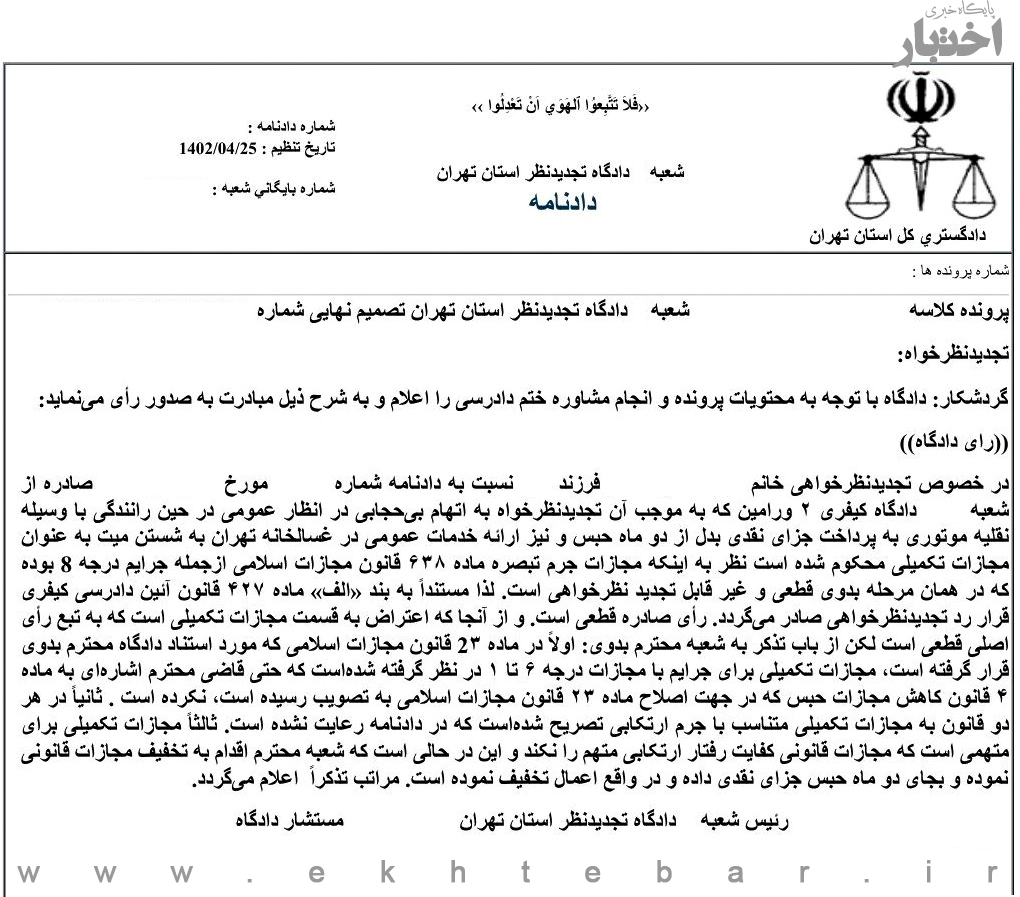 پایگاه خبری
اختبار
‹‹فَلاَ تَتَّبِعوُا ٱلهَوَي اَنْ تَعْدِلُوا ››
شماره دادنامه :
تاریخ تنظیم : 1402/04/25
شعبه دادگاه تجدیدنظر استان تهران
شماره بایگاني شعبه :
دادنامه
دادگستري کل استان تهران
شماره پرونده ها :
پرونده کلاسه شعبه دادگاه تجدیدنظر استان تهران تصمیم نهایی شماره
تجدیدنظرخواه:
گردشکار: دادگاه با توجه به محتویات پرونده و انجام مشاوره ختم دادرسی را اعلام و به شرح ذیل مبادرت به صدور رأی می‌نماید:
((رای دادگاه))
در خصوص تجدیدنظرخواهی خانم فرزند نسبت به دادنامه شماره مورخ صادره از
شعبه دادگاه کیفری ۲ ورامین که به موجب آن تجدیدنظرخواه به اتهام بی‌حجابی در انظار عمومی در حین رانندگی با وسیله
نقلیه موتوری به پرداخت جزای نقدی بدل از دو ماه حبس و نیز ارائه خدمات عمومی در غسالخانه تهران به شستن میت به عنوان
مجازات تکمیلی محکوم شده است نظر به اینکه مجازات جرم تبصره ماده ۶۳۸ قانون مجازات اسلامی ازجمله جرایم درجه 8 بوده
که در همان مرحله بدوی قطعی و غیر قابل تجدید نظرخواهی است. لذا مستنداً به بند «الف» ماده ۴۲۷ قانون آئین دادرسی کیفری
قرار رد تجدیدنظرخواهی صادر می‌گردد. رأی صادره قطعی است. و از آنجا که اعتراض به قسمت مجازات تکمیلی است که به تبع رأی
اصلی قطعی است لکن از باب تذکر به شعبه محترم بدوی: اولاً در ماده 23 قانون مجازات اسلامی که مورد استناد دادگاه محترم بدوی
قرار گرفته است، مجازات تکمیلی برای جرایم با مجازات درجه ۶ تا ۱ در نظر گرفته شده‌است که حتی قاضی محترم اشاره‌ای به ماده
۴ قانون کاهش مجازات حبس که در جهت اصلاح ماده ۲۳ قانون مجازات اسلامی به تصویب رسیده است، نکرده است . ثانیاً در هر
دو قانون به مجازات تکمیلی متناسب با جرم ارتکابی تصریح شده‌است که در دادنامه رعایت نشده است. ثالثاً مجازات تکمیلی برای
متهمی است که مجازات قانونی کفایت رفتار ارتکابی متهم را نکند و این در حالی است که شعبه محترم اقدام به تخفیف مجازات قانونی
نموده و بجای دو ماه حبس جزای نقدی داده و در واقع اعمال تخفیف نموده است. مراتب تذکراً اعلام می‌گردد.
رئیس شعبه دادگاه تجدیدنظر استان تهران مستشار دادگاه
www.ekhtebar.ir